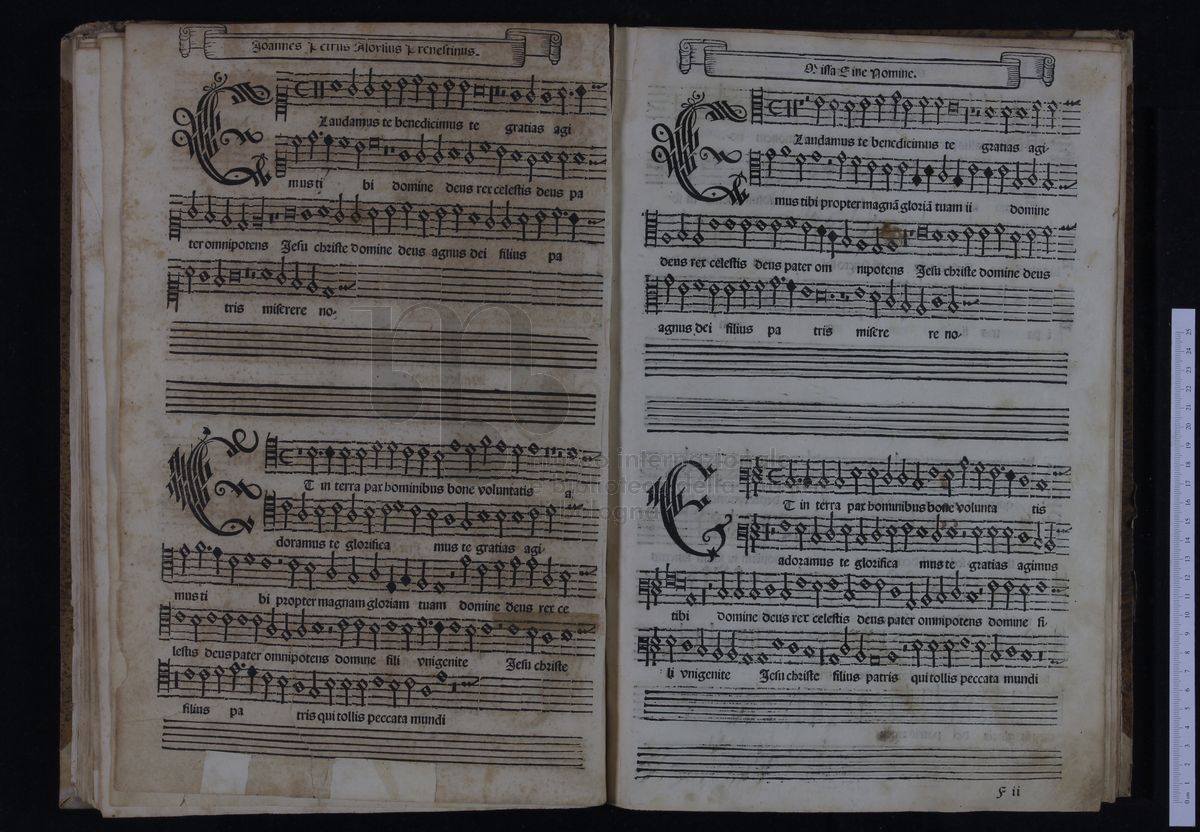 Joannes Petrus Aloysius Prenestinus.
Laudamus te benedicimus te gratias agi
mus ti bi domine deus rex celestis deus pa
ter omnipotens Jesu christe domine deus agnus dei filius pa
tris miserere no-
ET in terra pax hominibus bone voluntatis a
doramus te glorifica mus te gratias agi-
mus ti bi propter magnam gloriam tuam domine deus rex ce
lestis deus pater omnipotens domine fili vnigenite Jesu christe
filius pa tris qui tollis peccata mundi
Missa Sine Nomine.
Laudamus te benedicimus te gratias agi-
mus tibi propter magnã gloriã tuam ii domine
deus rex celestis deus pater om nipotens Jesu christe domine deus
agnus dei filius pa tris misere re no-
ET in terra pax hominibus bone volunta tis
adoramus te glorifica mus te gratias agimus
tibi domine deus rex celestis deus pater omnipotens domine fi-
li vnigenite Jesu christe filius patris qui tollis peccata mundi
F ii
museo internazionale
e biblioteca della
bologna